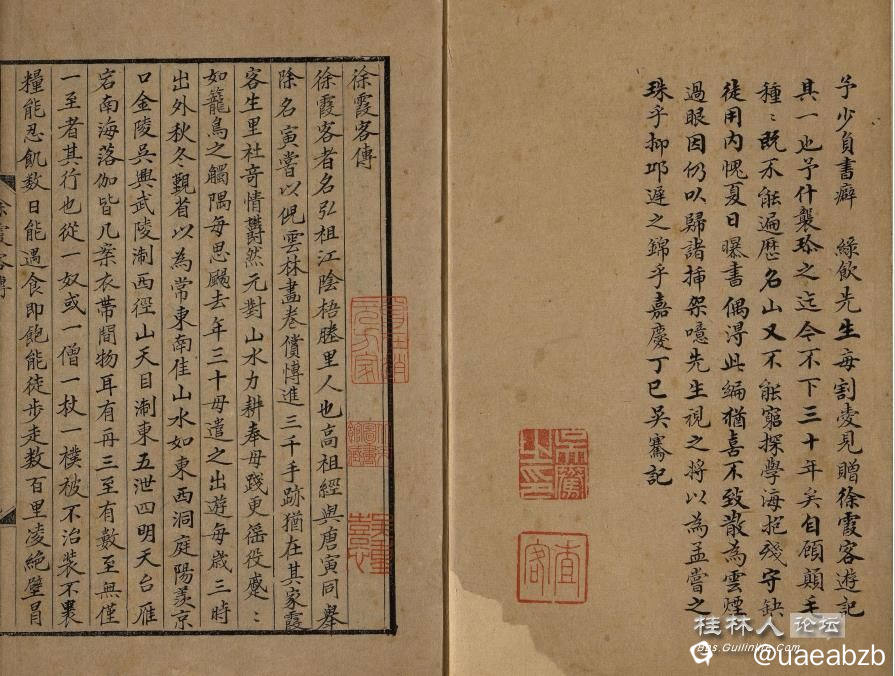 予少負書癖　綠飲先生每割愛見贈徐霞客遊記
其一也予什襲珍之迄今不下三十年矣自顧顛毛
種〻既不能遍歷名山又不能窮探學海抱殘守缺
徒用內愧夏日曝書偶得此編猶喜不致散為雲煙
過眼因仍以歸諸插架噫先生視之將以為孟嘗之
珠乎抑邱遲之錦乎嘉慶丁巳吳騫記
吳騫之印
徐霞客傳
徐霞客者名弘祖江陰梧塍里人也高祖經與唐寅同舉
除名寅嘗以倪雲林畫卷償博進三千手跡猶在其家霞
客生里社奇情鬱然元對山水力耕奉母踐更徭役蹙〻
如籠鳥之觸隅每思颺去年三十母遣之出遊每歲三時
出外秋冬覲省以為常東南佳山水如東西洞庭陽羨京
口金陵吳興武陵浙西徑山天目浙東五泄四明天台雁
宕南海落伽皆几案衣帶間物耳有再三至有數至無僅
一至者其行也從一奴或一僧一杖一襆被不治裝不裹
糧能忍飢數日能遇食即飽能徒步走數百里凌絕壁冒
徐霞客傳
桂林人论坛
bbs.Guilinlife.Com
@uaeabzb